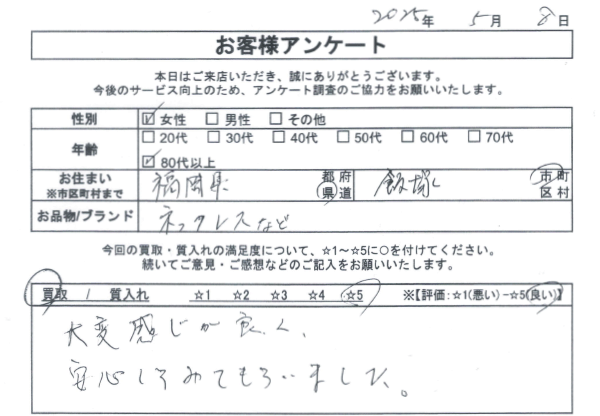 2025年 5月 8日
お客様アンケート
本日はご来店いただき、誠にありがとうございます。
今後のサービス向上のため、アンケート調査のご協力をお願いいたします。
性別 ☑女性 □男性 □その他
年齢 □20代 □30代 □40代 □50代 □60代 □70代
☑80代以上
お住まい ※市区町村まで 福岡県 都府県道 飯塚 市町区村
お品物/ブランド ネックレスなど
今回の買取・質入れの満足度について、☆1～☆5に○を付けてください。
続いてご意見・ご感想などのご記入をお願いいたします。
買取 / 質入れ ☆1 ☆2 ☆3 ☆4 ☆5 ※【評価:☆1(悪い)-☆5(良い)】
大変感じが良く、
安心してみてもらいました。